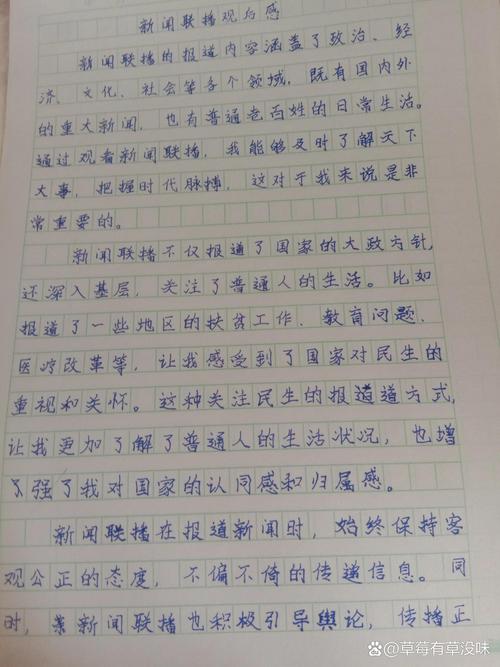 新闻联播观后感
新闻联播的报道内容涵盖了政治、经
济、文化、社会等各个领域，既有国内外
的重大新闻，也有普通老百姓的日常生活。
通过观看新闻联播，我能够及时了解天下
大事，把握时代脉搏，这对于我来说是非
常重要的。
新闻联播不仅报道了国家的大政方针，
还深入基层，关注了普通人的生活。比如
报道了一些地区的扶贫工作、教育问题、
医疗改革等，让我感受到了国家对民生的
重视和关怀。这种关注民生的报道道方式，
让我更加了解了普通人的生活状况，也增
强了我对国家的认同感和归属感。
新闻联播在报道新闻时，始终保持客
观公正的态度，不偏不倚的传递信息。同
时，新闻联播也积极引导舆论，传播正
@草莓有草没味